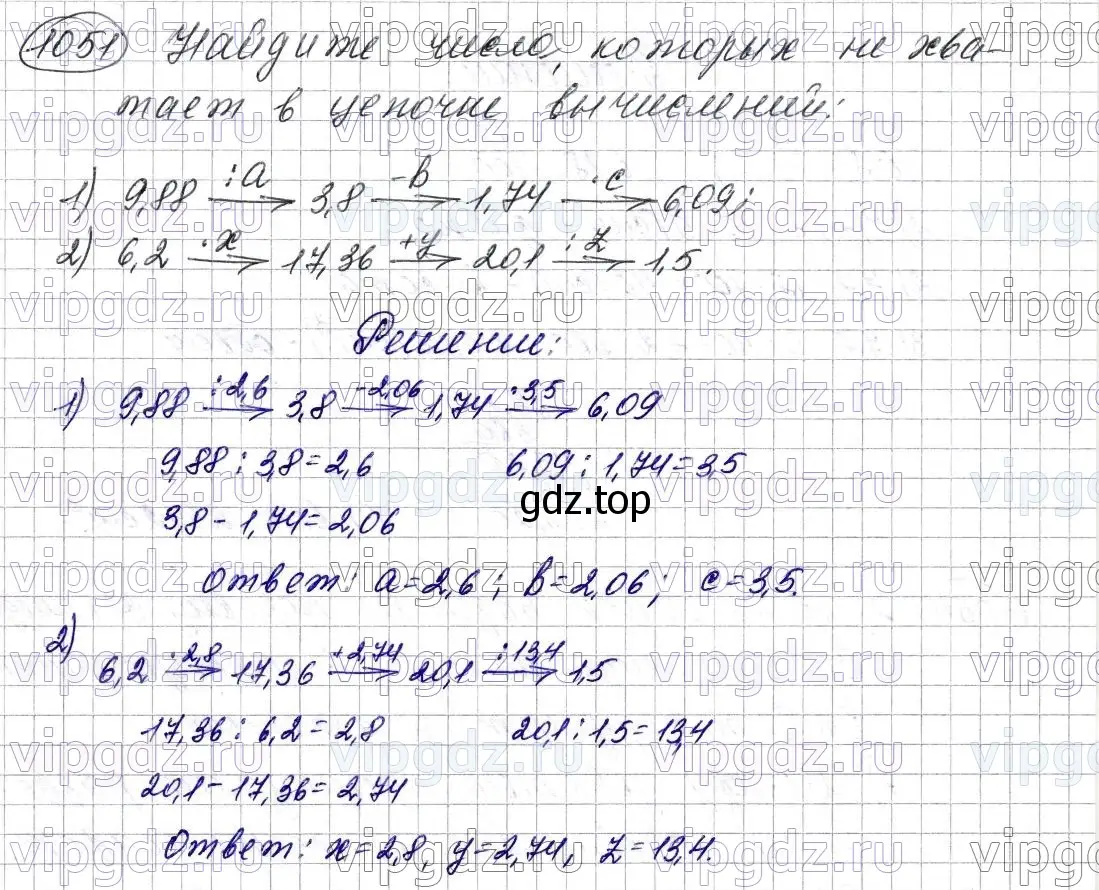 1051 Найдите число, которых не хва-
тает в цепочки вычислений:
1) 9,88 :a→ 3,8 -b→ 1,74 ·c→ 6,09;
2) 6,2 ·x→ 17,36 +y→ 20,1 :z→ 1,5.
Решение:
1) 9,88 :2,6→ 3,8 -2,06→ 1,74 ·3,5→ 6,09
9,88 : 3,8 = 2,6 6,09 : 1,74 = 3,5
gdz.top
3,8 - 1,74 = 2,06
Ответ: a=2,6; b=2,06; c=3,5.
2)
6,2 ·2,8→ 17,36 +2,74→ 20,1 :13,4→ 1,5
17,36 : 6,2 = 2,8 20,1 : 1,5 = 13,4
20,1 - 17,36 = 2,74
Ответ: x=2,8, y=2,74, z=13,4.
vipgdz.ru